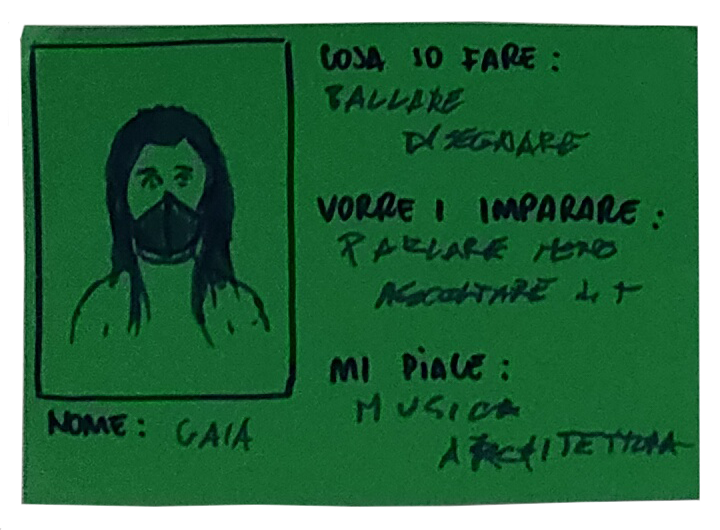 COSA SO FARE:
BALLARE
DISEGNARE
VORREI IMPARARE:
PARLARE MENO
ASCOLTARE DI +
MI PIACE:
MUSICA
ARCHITETTURA
NOME: GAIA